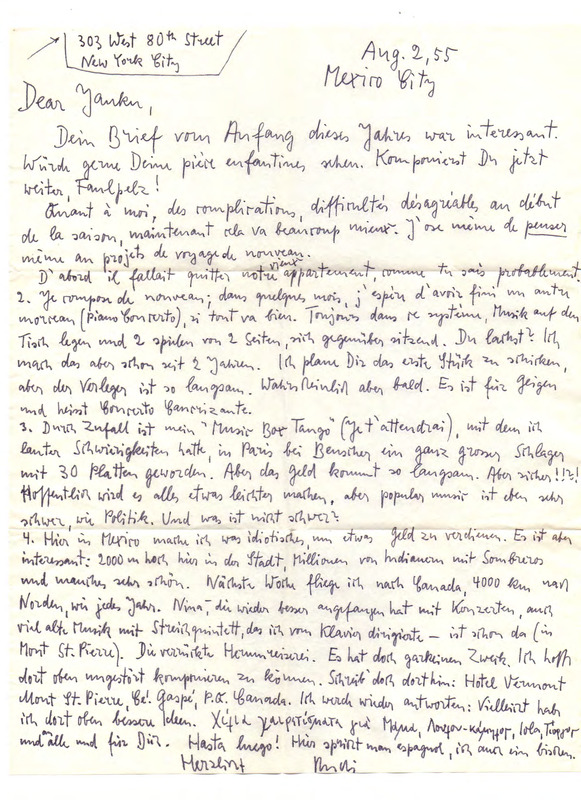 303 West 80th Street
New York City
Aug. 2, 55
Mexico City
Dear Yanku,
Dein Brief vom Anfang dieses Jahres war interessant.
Würde gerne Deine pièce enfantines sehen. Komponierst Du jetzt
weiter, Faulpelz!
Quant à moi, des complications, difficultés désagréables au début
de la saison, maintenant cela va beaucoup mieux. J'ose même de penser
même au projets de voyage de nouveau.
D'abord il fallait quitter notre vieux appartement, comme tu sais probablement.
2. Je compose de nouveau; dans quelques mois, j'espère d'avoir fini un autre
morceau (Piano Concerto), si tout va bien. Toujours dans ce système, Musik auf den
Tisch legen und 2 spielen von 2 Seiten, sich gegenüber sitzend. Du lachst? Ich
mach das aber schon seit 2 Jahren. Ich plane Dir das erste Stück zu schicken,
aber der Verleger ist so langsam. Wahrscheinlich aber bald. Es ist für Geigen
und heisst Concerto Cancrizante.
3. Durch Zufall ist mein "Music Box Tango" (Je t'attendrai), mit dem ich
lauter Schwierigkeiten hatte, in Paris bei Benscher ein ganz grosser Schlager
mit 30 Platten geworden. Aber das Geld kommt so langsam. Aber sicher!!?!
Hoffentlich wird es alles etwas leichter machen, aber popular music ist eben sehr
schwer, wie Politik. Und was ist nicht schwer?
4. Hier in Mexico mache ich was idiotisches, um etwas Geld zu verdienen. Es ist aber
interessant: 2000 m hoch hier in der Stadt, Millionen von Indianern mit Sombreros
und manches sehr schön. Nächste Woche fliege ich nach Canada, 4000 km nach
Norden, wie jedes Jahr. Nina, die wieder besser angefangen hat mit Konzerten, auch
viel alte Musik mit Streichquintett, das ich vom Klavier dirigierte – ist schon da (in
Mont St. Pierre). Die verrückte Herumreiserei. Es hat doch garkeinen Zweck. Ich hoffe
dort oben ungestört komponieren zu können. Schreib doch dorthin: Hotel Vermont
Mont St. Pierre, Cé. Gaspé, P.Q. Canada. Ich werde wieder antworten: Vielleicht hab
ich dort oben bessere Ideen. Χίλια χαιρετίσματα γιὰ Μάμα,
und alle und für Dich. Hasta luego! Hier spricht man espagnol, ich auch ein bischen.
Herzlichst Rudi